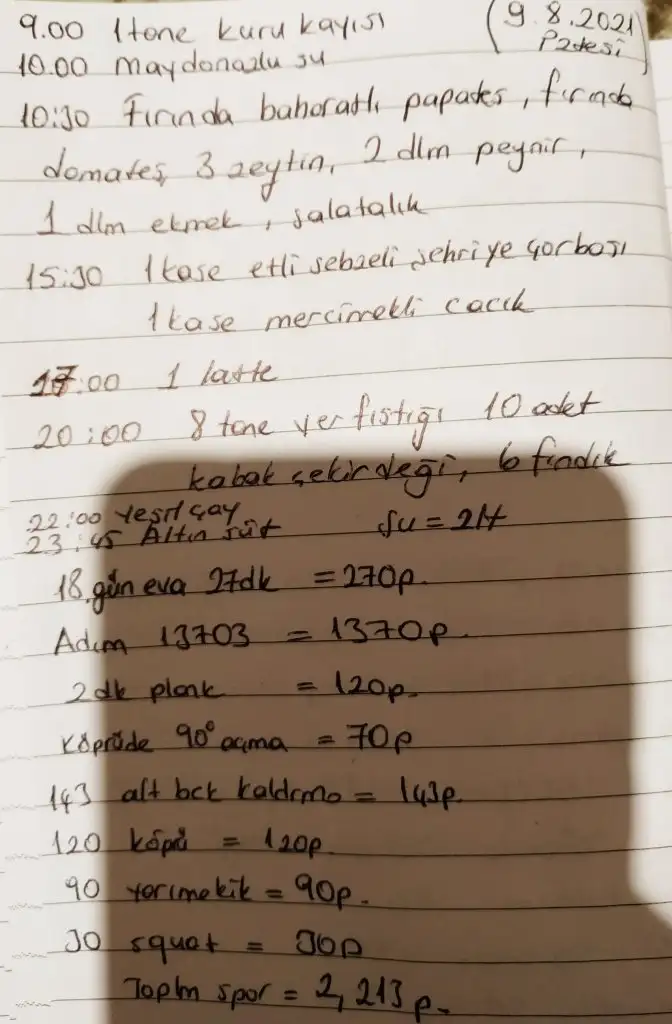 9.00 1 tane kuru kayısı (9.8.2021
10.00 maydonozlu su Pztesi)
10:30 Fırında baharatlı patates, fırında
domates, 3 zeytin, 2 dlm peynir,
1 dlm ekmek, salatalık
15:30 1 kase etli sebzeli şehriye çorbası
1 kase mercimekli cacık
17:00 1 latte
20:00 8 tane yer fıstığı 10 adet
kabak çekirdeği, 6 fındık
22:00 Yeşil çay
23:45 Altın süt Su = 2 lt
18. gün eva 27dk = 270p.
Adım 13703 = 1370p.
2dk plank = 120p.
köprüde 90° açma = 70p
143 alt bck kaldırma = 143p.
120 köprü = 120p
90 yarımekik = 90p.
30 squat = 30p
Toplm spor = 2,213p.